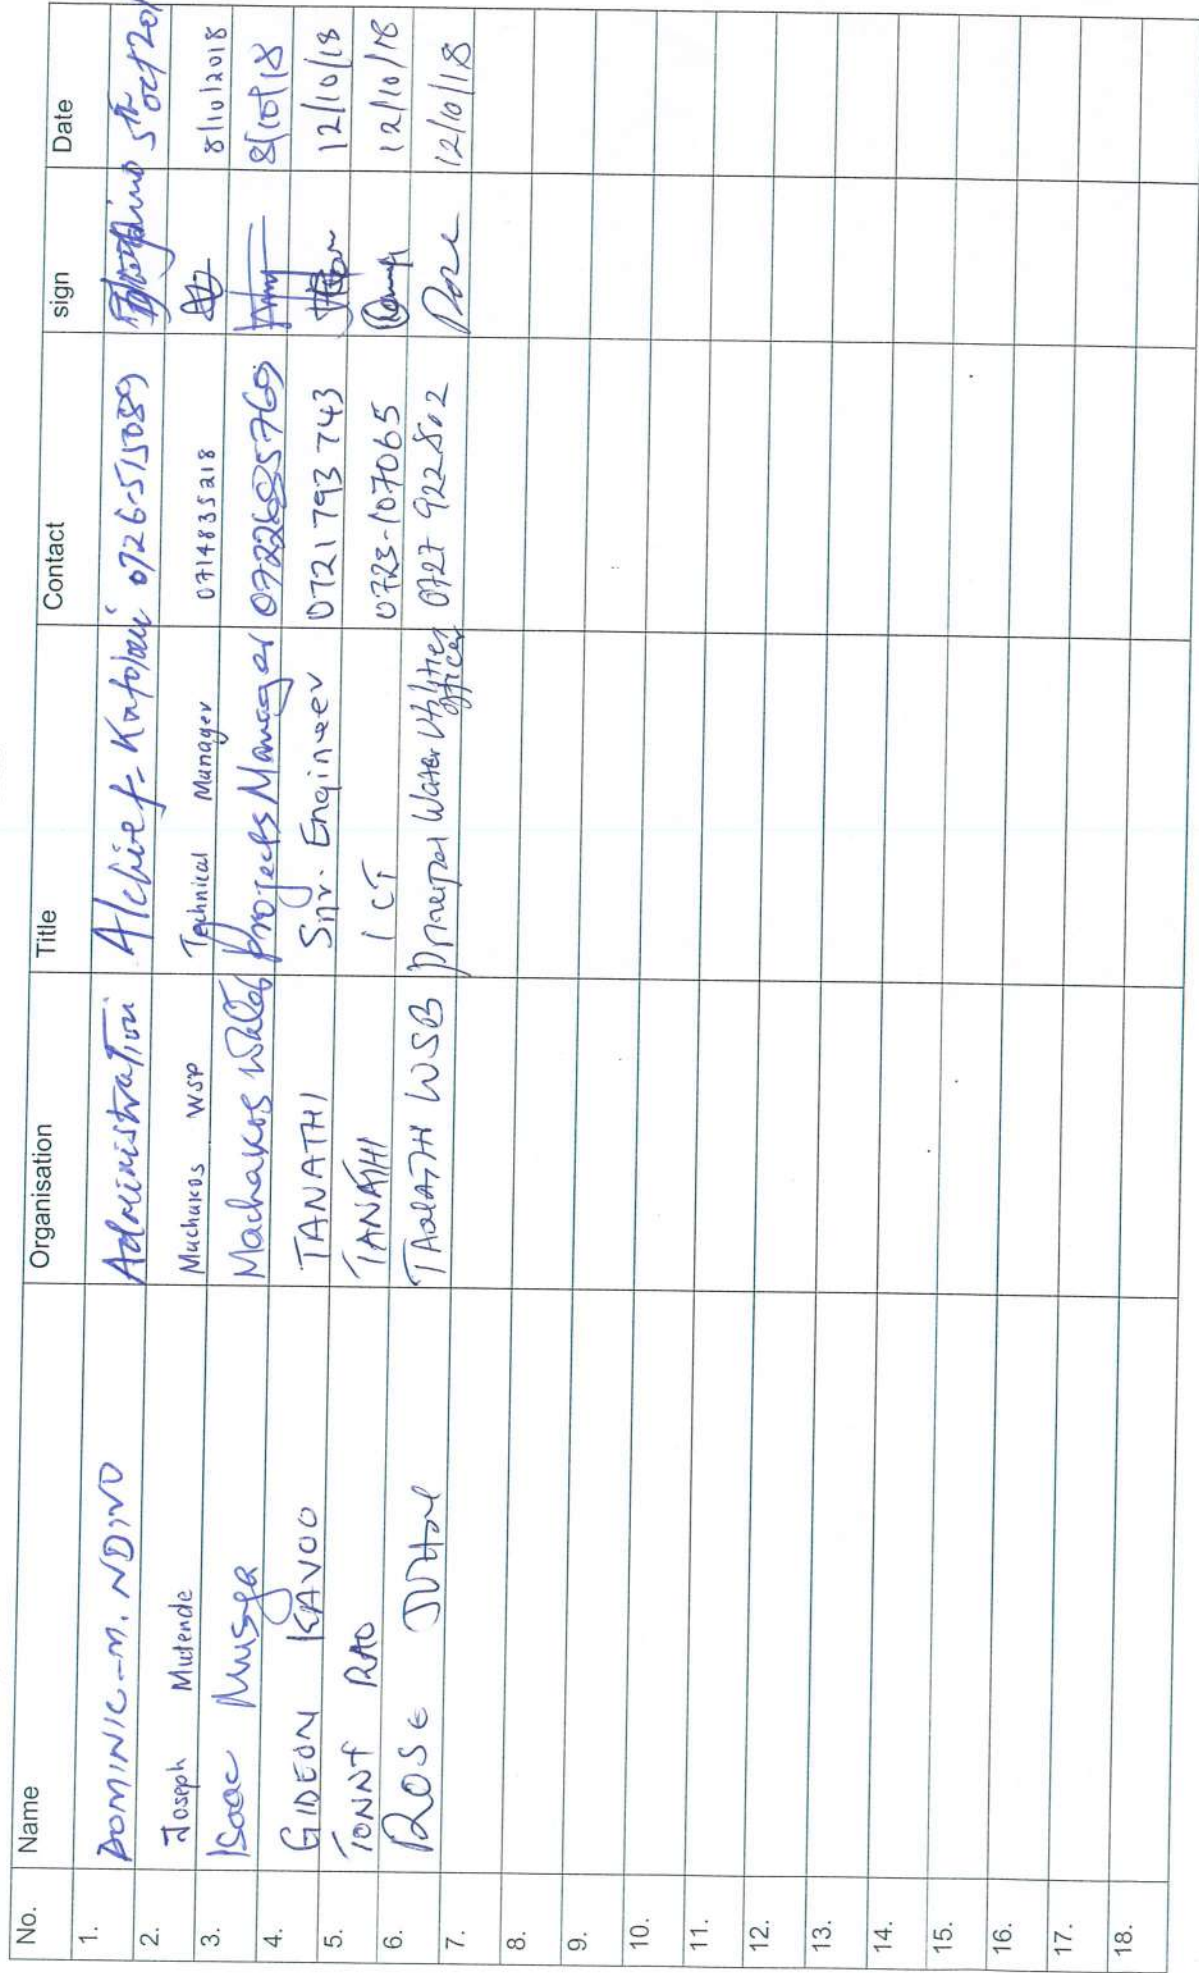 No. Name Organisation Title Contact sign Date
1. DOMINIC-M. NDIVO Administration A/chief- 0726-515089 5th oct 201
2. Joseph Mutende Machakos WSP Technical Manager 0714835218 8/10/2018
3. Isaac Musya Machakos Projects Manager 8/10/18
4. GIDEON KAVOO TANATHI Snr. Engineer 0721793743 12/10/18
5. TONNY RAO TANATHI ICT 0723-107065 12/10/18
6. ROSE WSB Principal Water Utilities officer 0727 922802 Rose 12/10/18
7.
8.
9.
10.
11.
12.
13.
14.
15.
16.
17.
18.